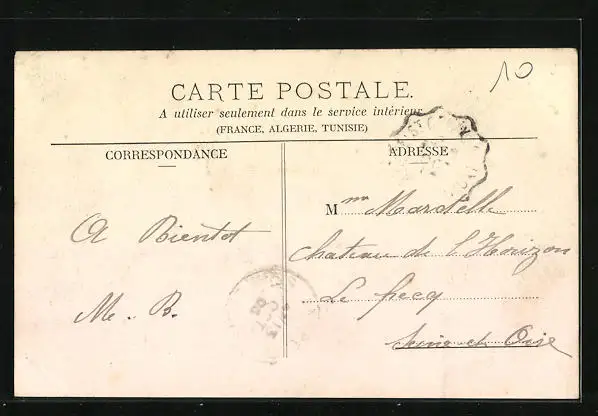 10
CARTE POSTALE.
A utiliser seulement dans le service intérieur
(FRANCE, ALGERIE, TUNISIE)
CORRESPONDANCE
ADRESSE
A Bientot
M. B.
Mme Mardelle
Chateau de l'Horizon
Le pecq
Seine et Oise